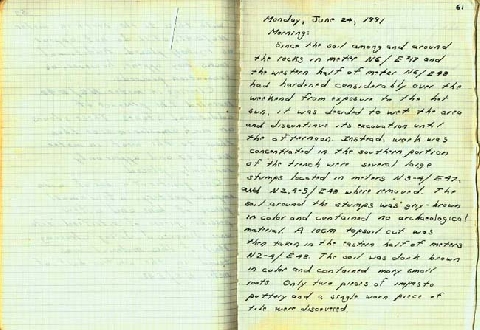 61
Monday, June 24, 1991
Morning:
Since the soil among and around
the rocks in meter N6/E48 and
the western half of meter N6/E49
had hardened considerably over the
weekend from exposure to the hot
sun, it was decided to wet the area
and discontinue its excavation until
the afternoon. Instead, work was
concentrated in the southern portion
of the trench were several large
stumps located in meters N3-4/E47
and N2,4-5/E48 where removed. The
soil around the stumps was grey-brown
in color and contained no archaeological
material. A 10cm topsoil cut was
then taken in the eastern half of meters
N2-4/E48. The soil was dark brown
in color and contained many small
roots. Only two pieces of impasto
pottery and a single worn piece of
tile were discovered